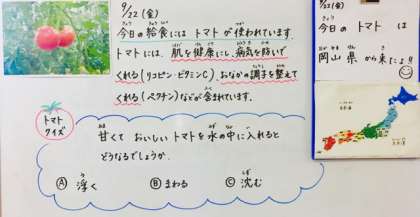 9/22 (金)
今日の給食には トマト が使われています。
トマトには、肌を健康にし、病気を防いで
くれる(リコピン・ビタミンC)、おなかの調子を整えて
くれる(ペクチン)などが含まれています。
トマト
クイズ
甘くて おいしいトマトを水の中に入れると
どうなるでしょうか。
Ⓐ 浮く Ⓑ まわる Ⓒ 沈む
9/22 (金)
今日の トマト は
岡山県 から来たよ!!